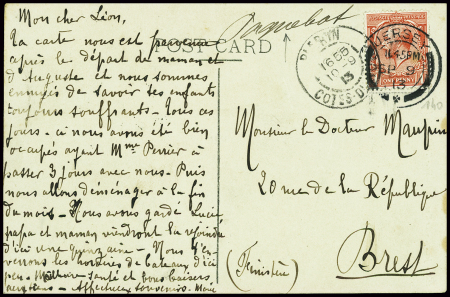 Mon cher Léon,
Paquebot
POST CARD
La carte nous est parvenue
après le départ de maman et
d'Auguste et nous sommes
ennuyés de savoir tes enfants
toujours souffrants. Tous ces
jours-ci nous avons été bien
occupés ayant Mme Perrier à
passer 3 jours avec nous. Puis
nous allons déménager à la fin
du mois - Nous avons gardé Lucie
papa et maman viendront la rejoindre
d'ici une quinzaine - Nous
verrons les horaires de bateaux d'ici
peu - Meilleure santé et bons baisers
Affectueux souvenirs. Marie
16 55
10 - 9
13
COTES-D
JERSEY
SP 9
13
ONE PENNY
Monsieur le Docteur Maupin
20 rue de la République
Brest
(Finistère)